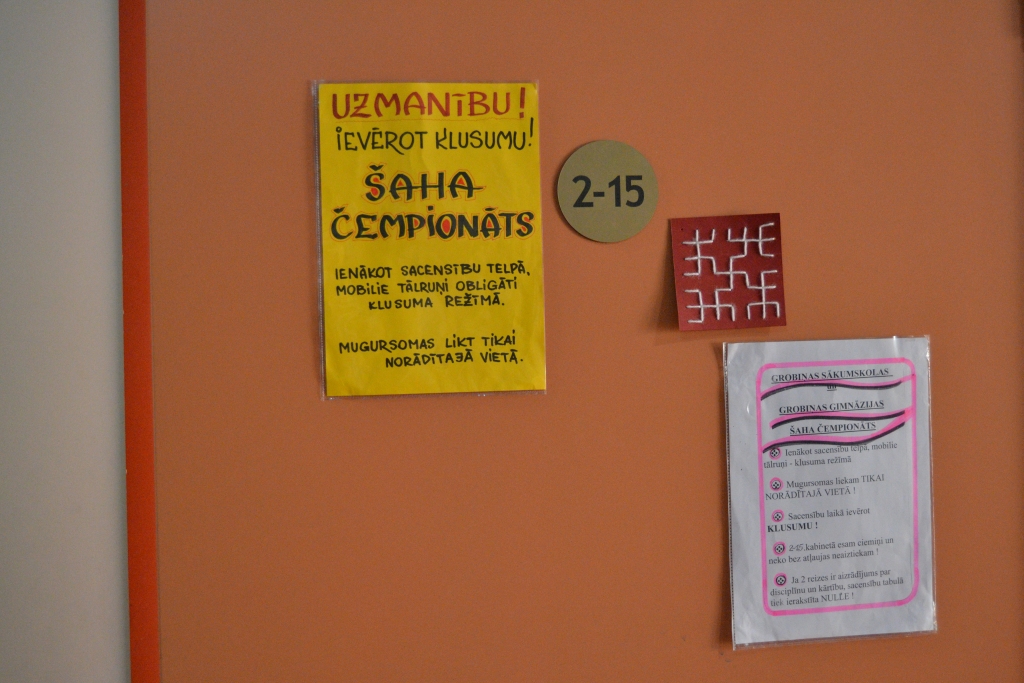 UZMANĪBU!
IEVĒROT KLUSUMU!
ŠAHA
ČEMPIONĀTS
IENĀKOT SACENSĪBU TELPĀ,
MOBILIE TĀLRUŅI OBLIGĀTI
KLUSUMA REŽĪMĀ.
MUGURSOMAS LIKT TIKAI
NORĀDĪTAJĀ VIETĀ.
2-15
GROBIŅAS SĀKUMSKOLAS
un
GROBIŅAS ĢIMNĀZIJAS
ŠAHA ČEMPIONĀTS
Ienākot sacensību telpā, mobilie
tālruņi - klusuma režīmā
Mugursomas liekam TIKAI
NORĀDĪTAJĀ VIETĀ !
Sacensību laikā ievērot
KLUSUMU !
2-15.kabinetā esam ciemiņi un
neko bez atļaujas neaiztiekam !
Ja 2 reizes ir aizrādījums par
disciplīnu un kārtību, sacensību tabulā
tiek ierakstīta NULLE !